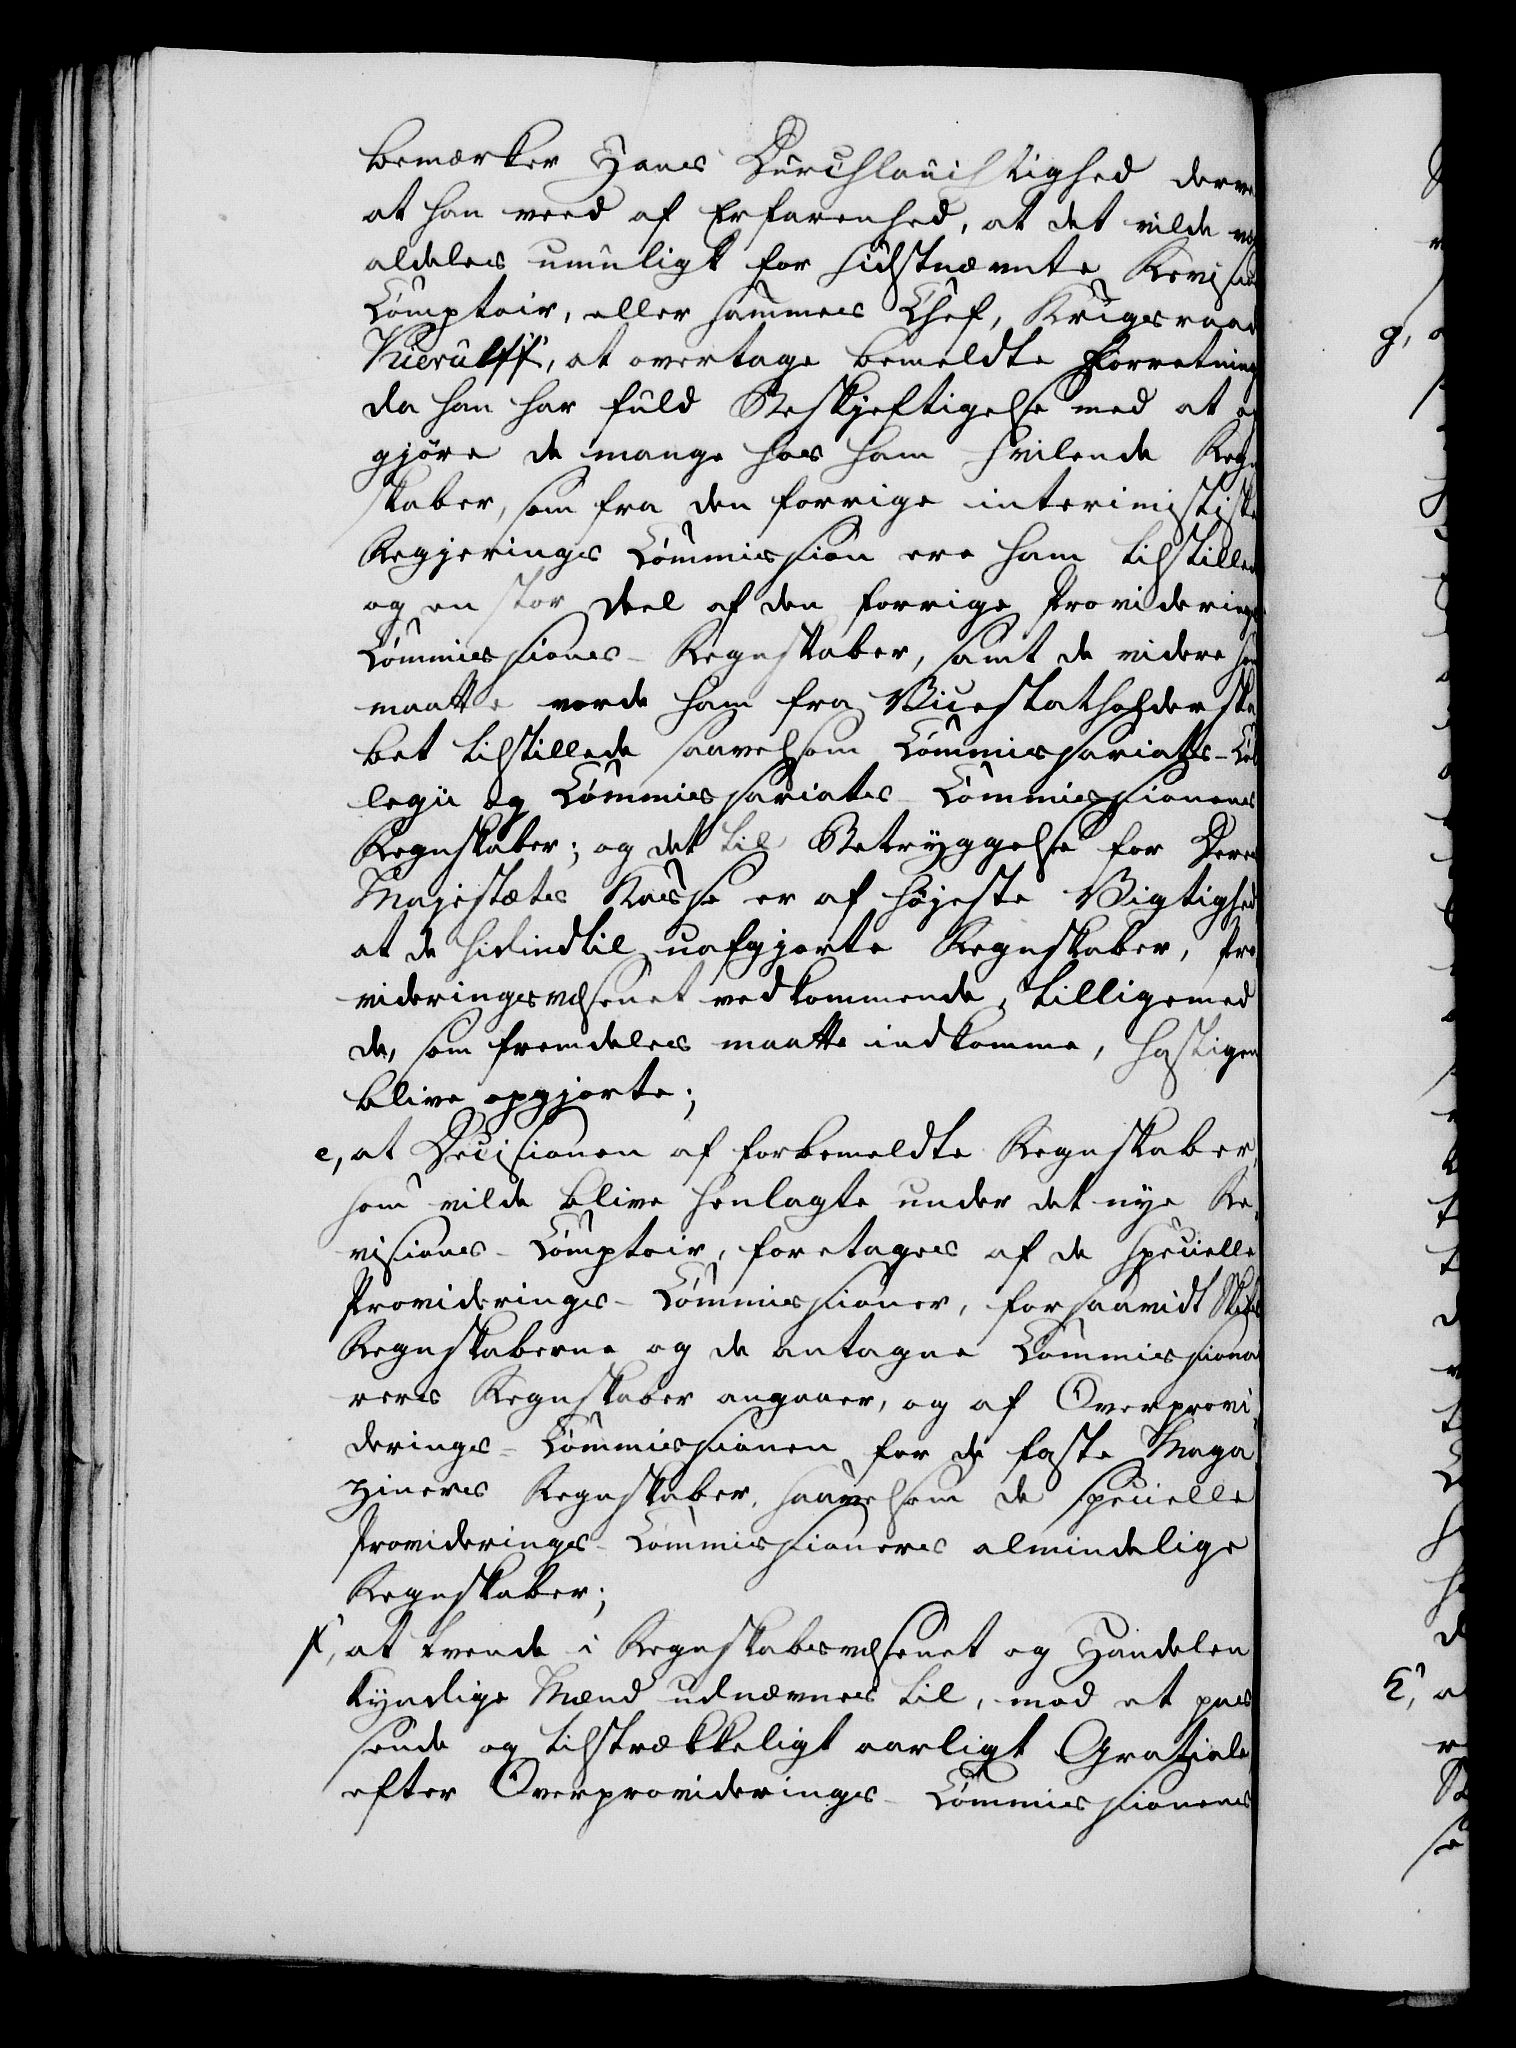 bemærker Hans Durchlauchtighed derved
at han veed af Erfarenhed, at det vilde
aldeles umuligt for sidstnævnte Revisions
Comptoir, eller sammes Chef, Krigsraad
Kierulff, at overtage bemeldte Forretning
da han har fuld Beskjeftigelse med at
gjöre de mange hos ham hvilende Regn
skaber, som fra den forrige interimistiske
Regjerings Commission ere ham tilstillede
og en stor Deel af den forrige Providerings
Commissions-Regnskaber, samt de videre
maatte vorde ham fra Vicestatholderska
bet tilstillede saavelsom Commissariats-Col
legii og Commissariats-Commissionens
Regnskaber; og det til Betryggelse for Deres
Majestæts Kasse er af højeste Vigtighed
at de hidindtil uafgjorte Regnskaber, Pro
videringsvæsenet vedkommende, tilligemed
de, som fremdeles maatte indkomme, hastigen
blive opgjorte;
e, at Decisionen af forbemeldte Regnskaber,
som vilde blive henlagte under det nye Re-
visions-Comptoir, foretages af de specielle
Providerings-Commissioner, forsaavidt
Regnskaberne og de antagne Commissionai
rers Regnskaber angaaer, og af Overprovi-
derings-Commissionen for de faste Maga
ziners Regnskaber, saavelsom de specielle
Providerings-Commissioners almindelige
Regnskaber;
f, at tvende i Regnskabsvæsenet og Handelen
kyndige Mænd udnævnes til, mod et pas
sende og tilstrækkeligt aarligt Gratiale,
efter Overproviderings-Commissionens
g,